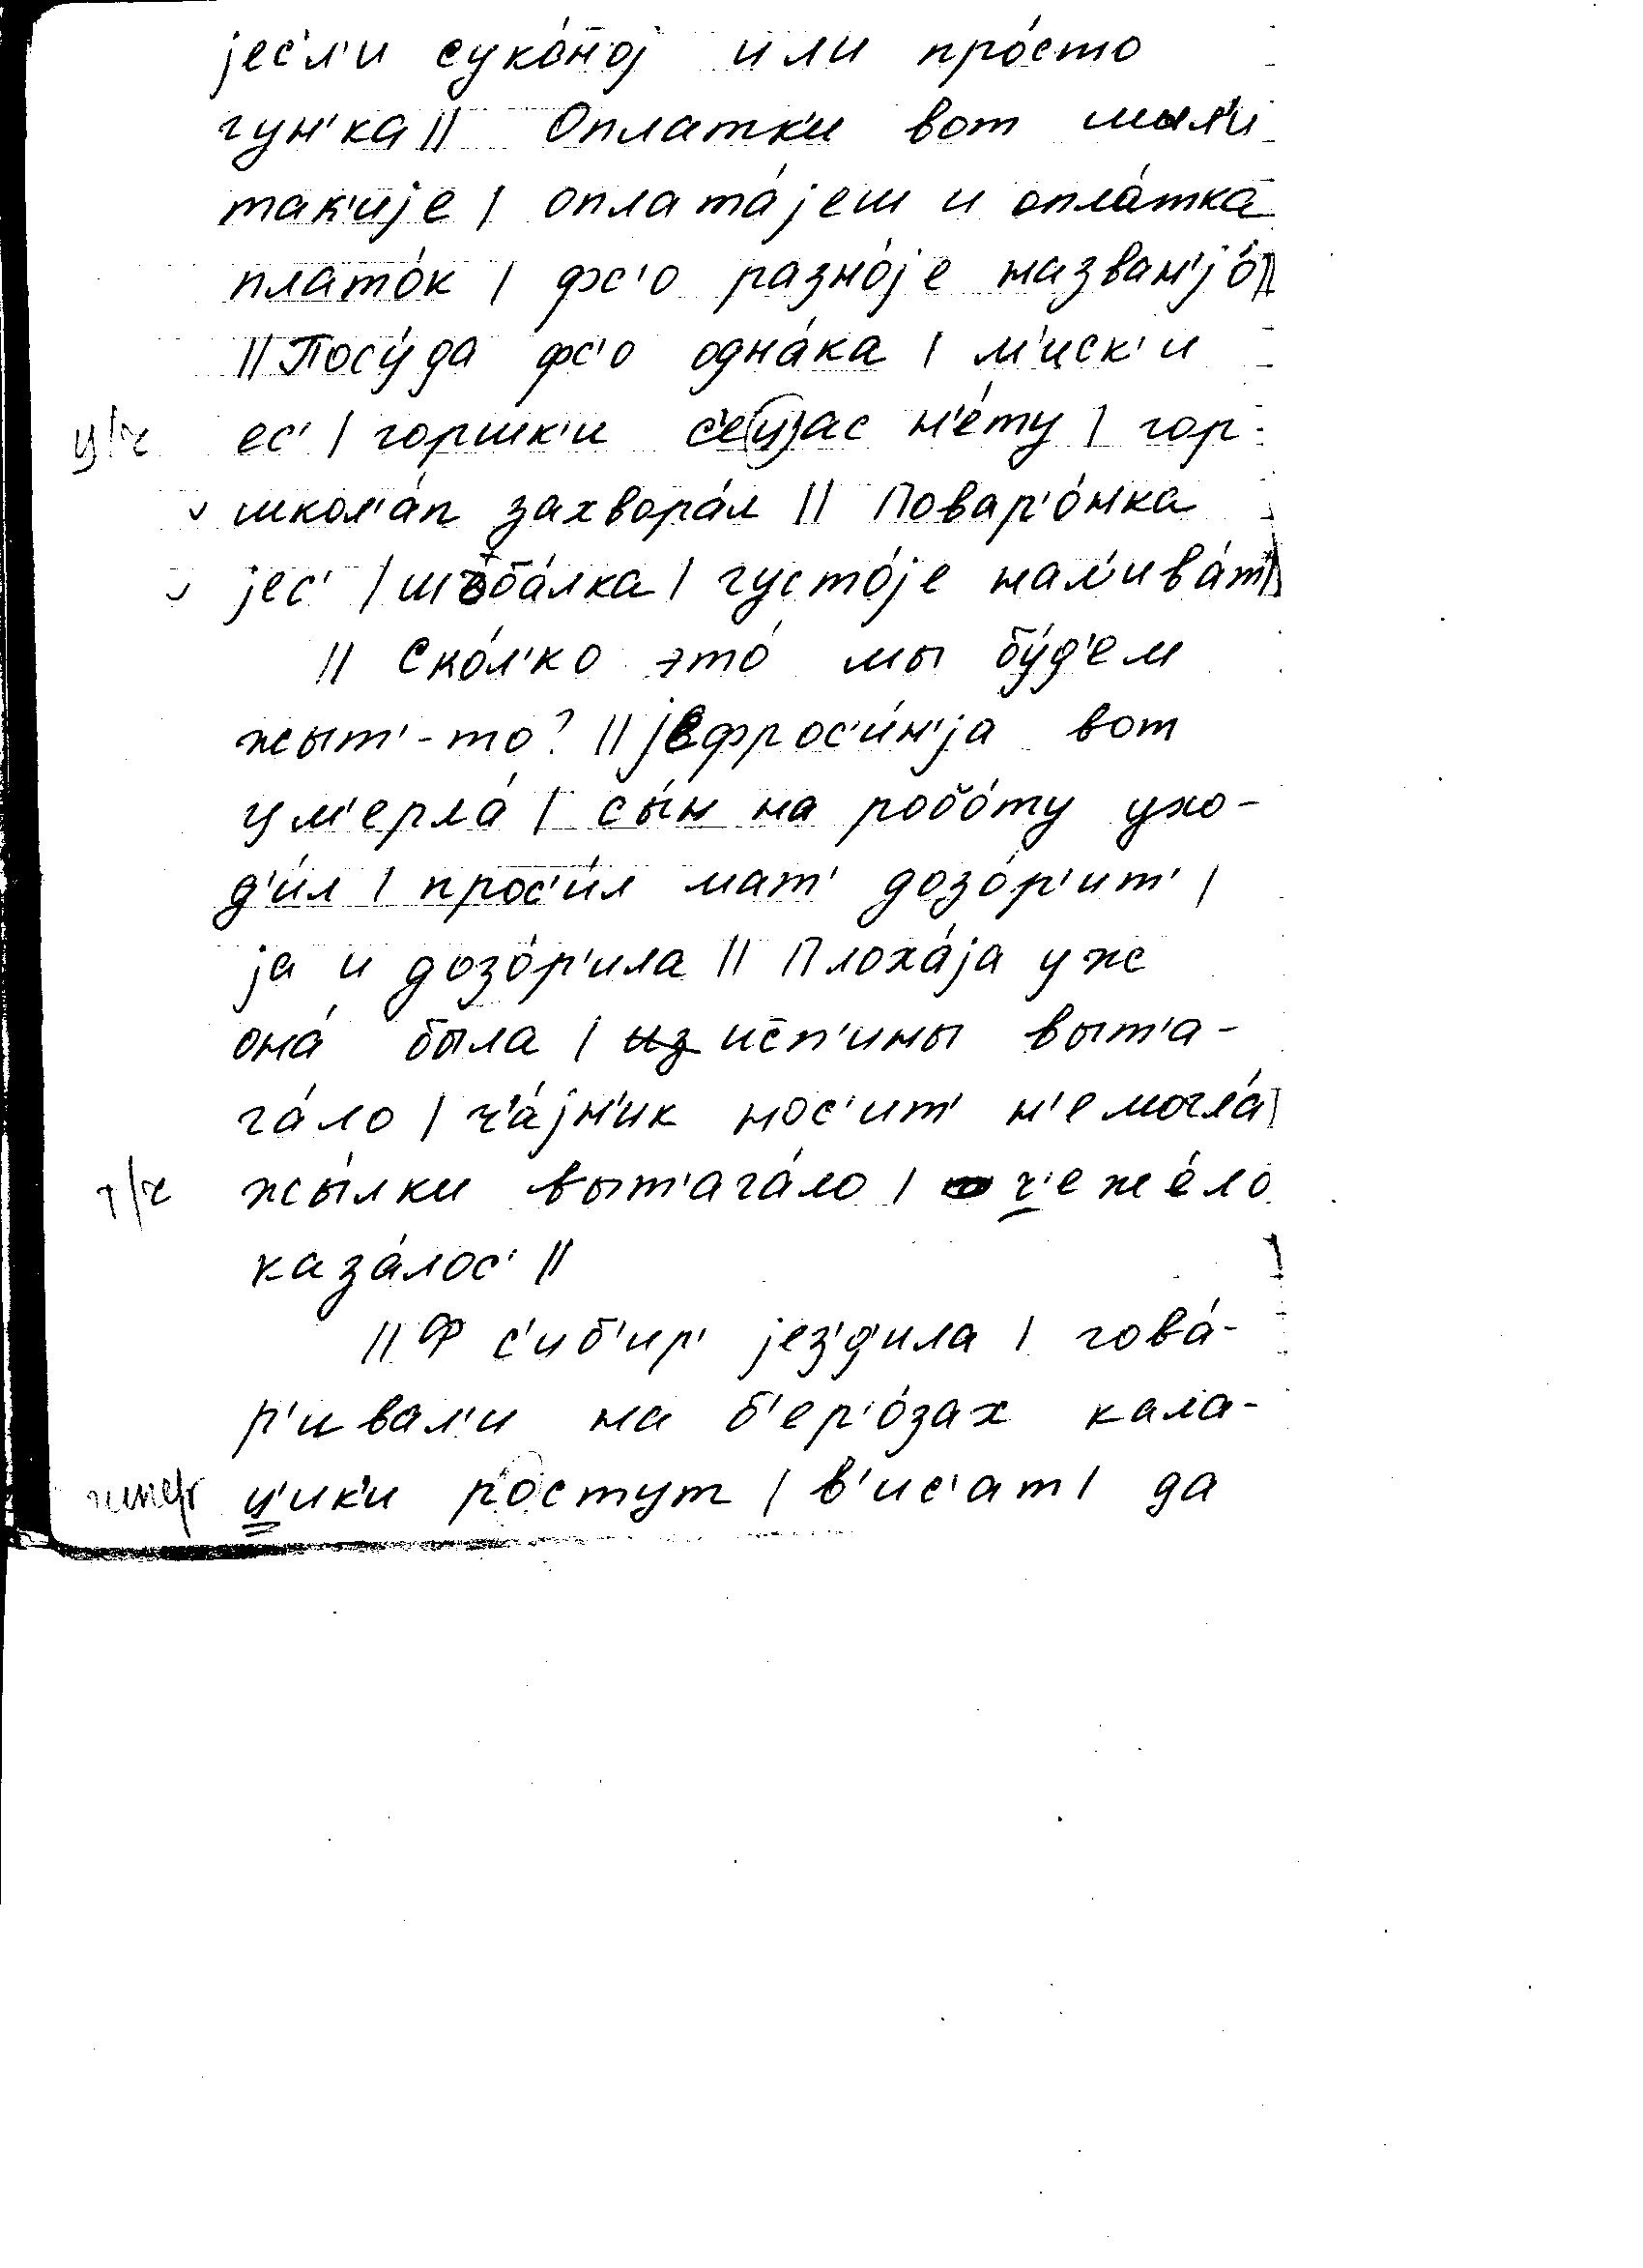 jес'л'и суко́н̄оj или про́сто
гун'ка || Оплатк'и вот мыл'и
так'иjе | оплата́jеш и опла́тка
плато́к | фс'о разно́jе назван'jо́ ||
|| Посу́да фс'о одна́ка | м'иск'и
ц/ч ес' | горшк'и с'ец'ас н'е́ту | гор-
школ'а́п захвора́л || Повар'о́нка
jес' | шоба́лка | густо́jе нал'ива́т' |
|| Ско́л'ко это́ мы бу́д'ем
жыт'-то? || jефрос'и́н'jа вот
ум'ерла́ | сы́н на робо́ту ухо-
д'и́л | прос'и́л мат' дозо́р'ит' |
jа и дозо́р'ила || Плоха́jа уж
она́ была | из ис̄п'ины выт'а-
га́ло | ч'а́jн'ик нос'ит' н'е могла́ |
т/ч жы́лки выт'ага́ло | ч'еже́ло
каза́лос' ||
|| Ф с'иб'ир' jез'д'ила | гова́-
р'ивал'и на б'ер'о́зах кала-
ц'ик'и ростут | в'ис'ат | да